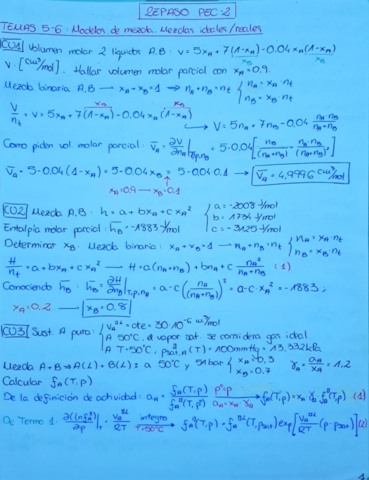 REPASO PEC-2
TEMAS 5-6: Modelos de mezcla. Mezclas ideales/reales
CU1 Volumen molar 2 líquidos A,B: v = 5xA + 7(1-xA) - 0.04 xA(1-xA)
xB xB
v: [cm³/mol]. Hallar volumen molar parcial con xA = 0.9.
Mezcla binaria A,B → xA + xB = 1 → nA + nB = nt { nA = xA·nt
nB = xB·nt
V/nt = v = 5xA + 7(1-xA) - 0.04 xA(1-xA)
xB xB
→ V = 5nA + 7nB - 0.04 nA·nB/(nA+nB)
Como piden vol. molar parcial: V̄A = ∂V/∂nA |T,p,nB = 5 - 0.04 [nB/(nA+nB) - nA·nB/(nA+nB)²]
V̄A = 5 - 0.04(1-xA) = 5 - 0.04 xB = 5 - 0.04·0.1 → V̄A = 4,9996 cm³/mol
xA=0.9 → xB=0.1
CU2 Mezcla A,B: h = a + bxA + cxA² { a = -2008 J/mol
b = 1754 J/mol
c = -3125 J/mol
Entalpía molar parcial: h̄B = -1883 J/mol
Determinar xB. Mezcla binaria: xA + xB = 1 → nA + nB = nt { nA = xA·nt
nB = xB·nt
H/nt = a + bxA + cxA² → H = a(nA+nB) + bnA + c nA²/(nA+nB) (1)
Conociendo h̄B: h̄B = ∂H/∂nB |T,p,nA = a - c(nA/(nA+nB))² = a - c·xA² = -1883;
xA = 0.2 → xB = 0.8
CU3 Sust. A pura: { vA = cte = 30·10⁻⁶ m³/mol
A 50°C, el vapor sat. se considera gas ideal
A T=50°C, psat,A(T) = 100mmHg = 13,332kPa
Mezcla A+B ⇒ A(L) + B(L): a 50°C y 51bar { xA = 0.3
xB = 0.7
γA = aA/xA = 1.2
Calcular fA(T,p)
De la definición de actividad: aA = fA(T,p)/fA(T,p°) p°=p aA = xA·γA → fA(T,p) = xA·γA·fA(T,p) (1)
De Termo 1: ∂(ln fA)/∂p |T = vA/RT integro T=50°C → fA(T,p) = fA(T,psat) exp[vA/RT (p-psat)] (2)